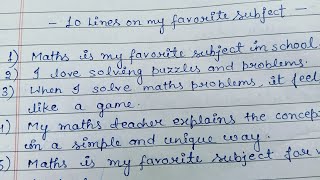 - 10 lines on my favorite subject -
1) Maths is my favorite subject in school
2) I love solving puzzles and problems.
3) When I solve maths problems, it feel
like a game.
4) My maths teacher explains the concep
in a simple and unique way.
5) Maths is my favorite subject for